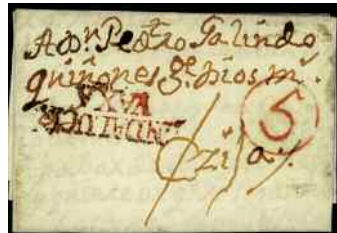 A Dn Pedro Galindo
quiñones ge. Dios ms.
BAXA
ANDALUCIA
5
Ezija